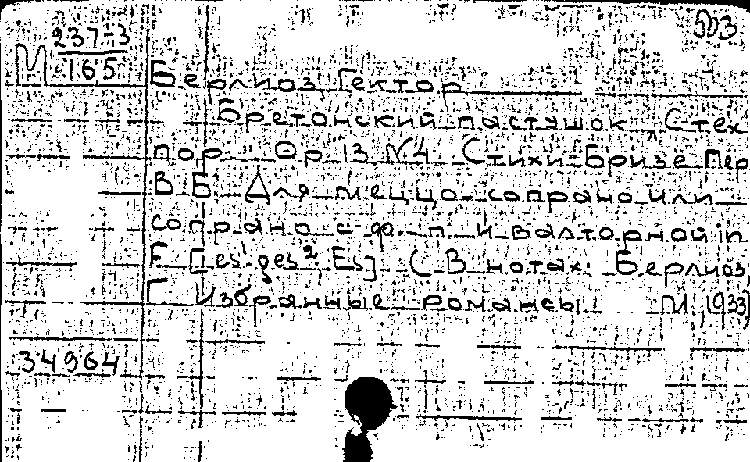 М 237-3
165
503
Берлиоз Гектор
Бретонский пастушок „С тех
пор" Op 13 N4. Стихи Бризе Пер
В. Б. Для меццо-сопрано или
сопрано с ф.-п. и валторной in
Es [es¹-ges². Es] (В нотах: Берлиоз
Г. Избранные романсы. М. 1933)
34964